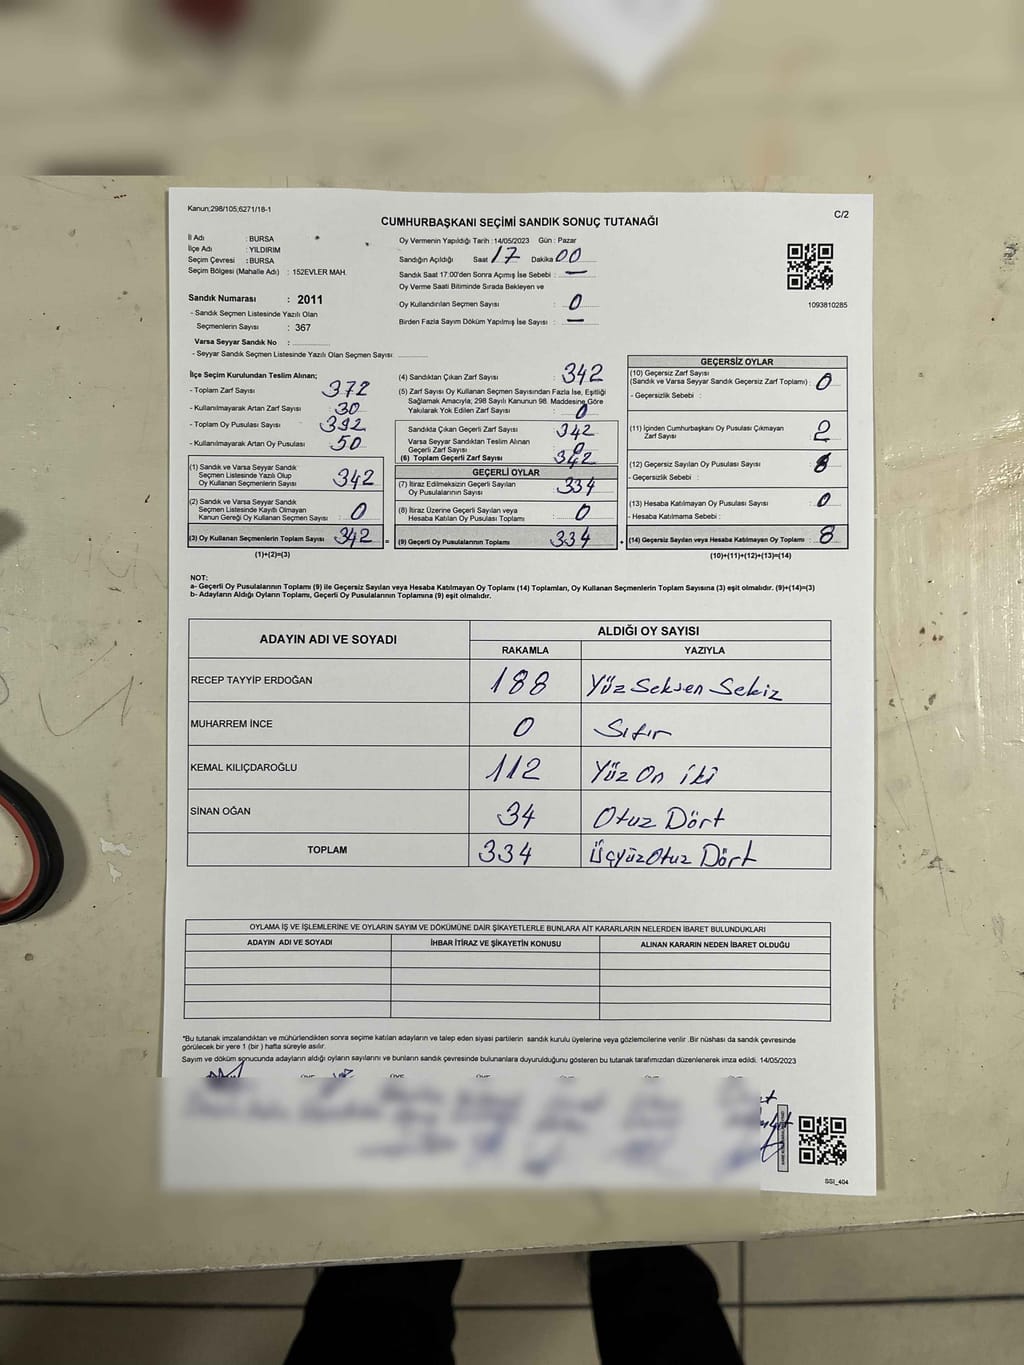 Kanun;298/105;6271/18-1
C/2
CUMHURBAŞKANI SEÇİMİ SANDIK SONUÇ TUTANAĞI
İl Adı : BURSA
İlçe Adı : YILDIRIM
Seçim Çevresi : BURSA
Seçim Bölgesi (Mahalle Adı) : 152EVLER MAH.
Sandık Numarası : 2011
- Sandık Seçmen Listesinde Yazılı Olan
Seçmenlerin Sayısı : 367
Varsa Seyyar Sandık No :
- Seyyar Sandık Seçmen Listesinde Yazılı Olan Seçmen Sayısı:
Oy Vermenin Yapıldığı Tarih :14/05/2023 Gün : Pazar
Sandığın Açıldığı Saat 17 Dakika 00
Sandık Saat 17:00'den Sonra Açımış İse Sebebi : —
Oy Verme Saati Bitiminde Sırada Bekleyen ve
Oy Kullandırılan Seçmen Sayısı : 0
Birden Fazla Sayım Döküm Yapılmış İse Sayısı : —
1093810285
İlçe Seçim Kurulundan Teslim Alınan;
- Toplam Zarf Sayısı : 372
- Kullanılmayarak Artan Zarf Sayısı : 30
- Toplam Oy Pusulası Sayısı : 392
- Kullanılmayarak Artan Oy Pusulası : 50
(1) Sandık ve Varsa Seyyar Sandık
Seçmen Listesinde Yazılı Olup
Oy Kullanan Seçmenlerin Sayısı : 342
(2) Sandık ve Varsa Seyyar Sandık
Seçmen Listesinde Kayıtlı Olmayan
Kanun Gereği Oy Kullanan Seçmen Sayısı : 0
(3) Oy Kullanan Seçmenlerin Toplam Sayısı : 342 =
(1)+(2)=(3)
(4) Sandıktan Çıkan Zarf Sayısı : 342
(5) Zarf Sayısı Oy Kullanan Seçmen Sayısından Fazla İse, Eşitliği
Sağlamak Amacıyla; 298 Sayılı Kanunun 98. Maddesine Göre
Yakılarak Yok Edilen Zarf Sayısı : 0
Sandıkta Çıkan Geçerli Zarf Sayısı : 342
Varsa Seyyar Sandıktan Teslim Alınan
Geçerli Zarf Sayısı : 0
(6) Toplam Geçerli Zarf Sayısı : 342
GEÇERLİ OYLAR
(7) İtiraz Edilmeksizin Geçerli Sayılan
Oy Pusulalarının Sayısı : 334
(8) İtiraz Üzerine Geçerli Sayılan veya
Hesaba Katılan Oy Pusulası Toplamı : 0
(9) Geçerli Oy Pusulalarının Toplamı : 334 +
GEÇERSİZ OYLAR
(10) Geçersiz Zarf Sayısı
(Sandık ve Varsa Seyyar Sandık Geçersiz Zarf Toplamı) : 0
- Geçersizlik Sebebi :
(11) İçinden Cumhurbaşkanı Oy Pusulası Çıkmayan
Zarf Sayısı : 2
(12) Geçersiz Sayılan Oy Pusulası Sayısı :
- Geçersizlik Sebebi :
(13) Hesaba Katılmayan Oy Pusulası Sayısı : 0
- Hesaba Katılmama Sebebi :
(14) Geçersiz Sayılan veya Hesaba Katılmayan Oy Toplamı : 8
(10)+(11)+(12)+(13)=(14)
NOT:
a- Geçerli Oy Pusulalarının Toplamı (9) ile Geçersiz Sayılan veya Hesaba Katılmayan Oy Toplamı (14) Toplamları, Oy Kullanan Seçmenlerin Toplam Sayısına (3) eşit olmalıdır. (9)+(14)=(3)
b- Adayların Aldığı Oyların Toplamı, Geçerli Oy Pusulalarının Toplamına (9) eşit olmalıdır.
ADAYIN ADI VE SOYADI ALDIĞI OY SAYISI
RAKAMLA YAZIYLA
RECEP TAYYİP ERDOĞAN 188 Yüz Seksen Sekiz
MUHARREM İNCE 0 Sıfır
KEMAL KILIÇDAROĞLU 112 Yüz On iki
SİNAN OĞAN 34 Otuz Dört
TOPLAM 334 Üçyüz Otuz Dört
OYLAMA İŞ VE İŞLEMLERİNE VE OYLARIN SAYIM VE DÖKÜMÜNE DAİR ŞİKAYETLERLE BUNLARA AİT KARARLARIN NELERDEN İBARET BULUNDUKLARI
ADAYIN ADI VE SOYADI İHBAR İTİRAZ VE ŞİKAYETİN KONUSU ALINAN KARARIN NEDEN İBARET OLDUĞU
*Bu tutanak imzalandıktan ve mühürlendikten sonra seçime katılan adayların ve talep eden siyasi partilerin sandık kurulu üyelerine veya gözlemcilerine verilir .Bir nüshası da sandık çevresinde
görülecek bir yere 1 (bir ) hafta süreyle asılır.
Sayım ve döküm sonucunda adayların aldığı oyların sayılarını ve bunların sandık çevresinde bulunanlara duyurulduğunu gösteren bu tutanak tarafımızdan düzenlenerek imza edildi. 14/05/2023
SSI_404